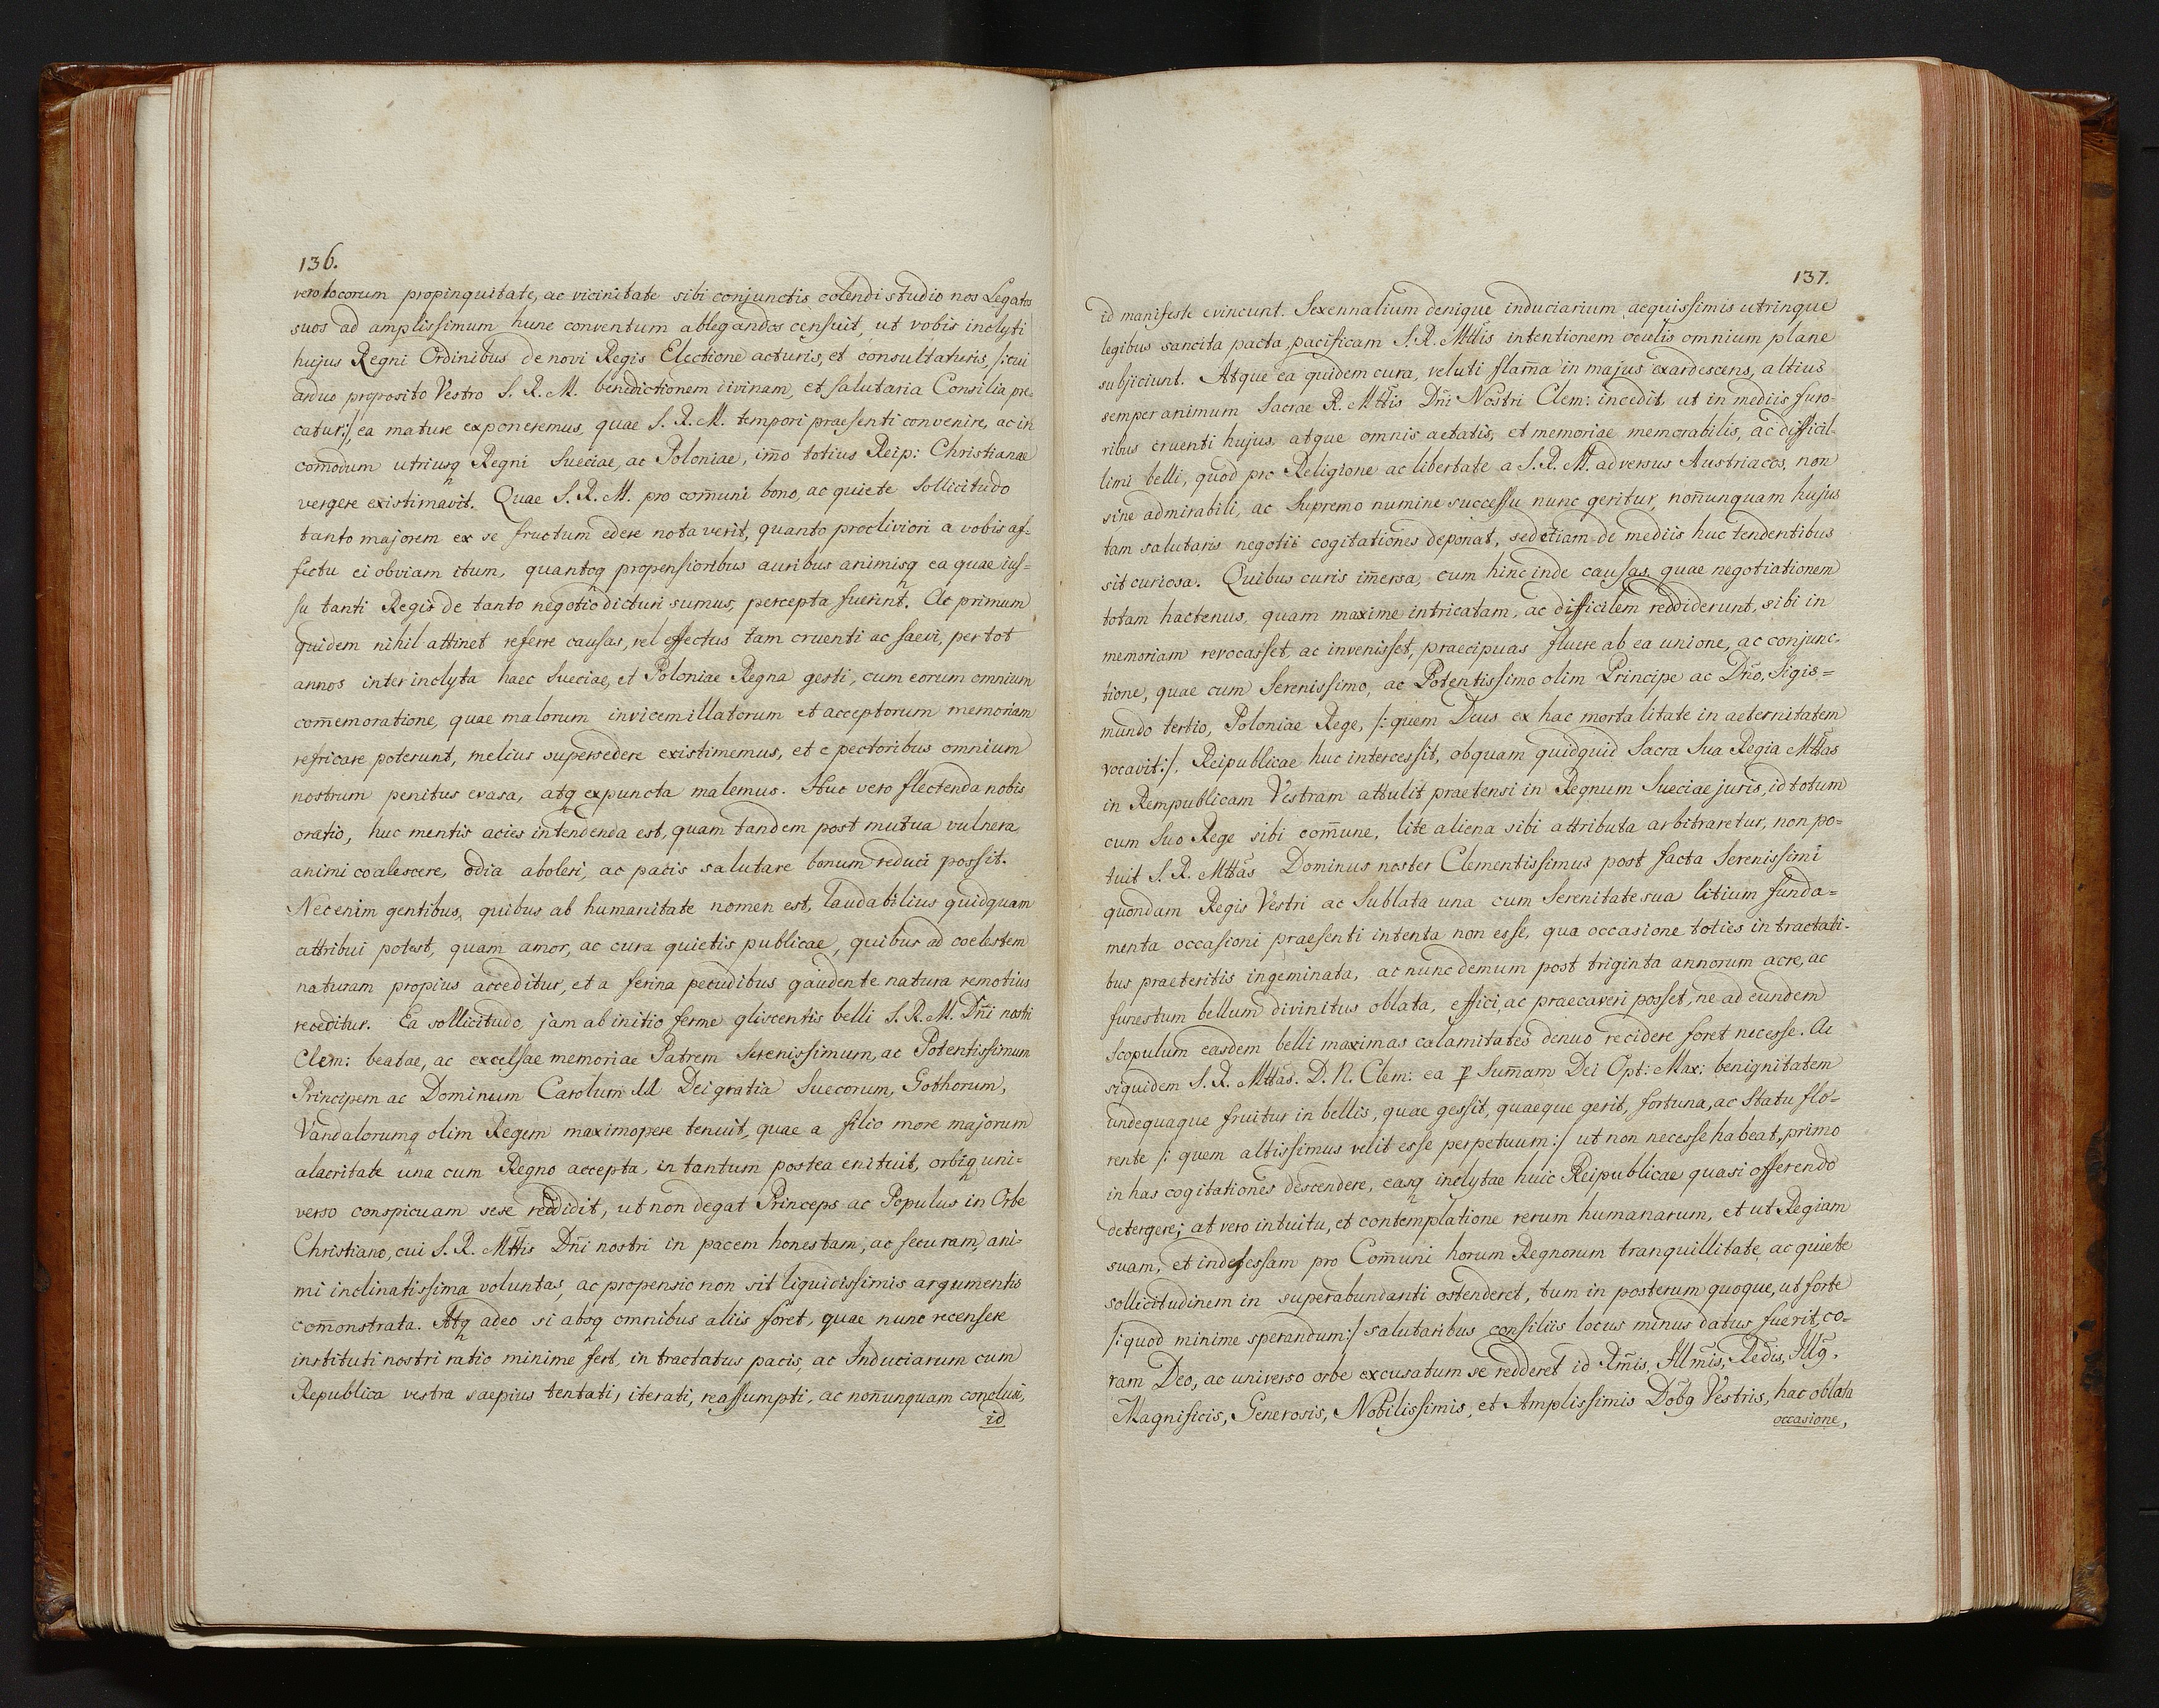 136.
vero locorum propinquitate, ac vicinitate sibi conjunctis colendi studio nos Legatos
suos ad amplissimum hunc conventum ablegandos censuit, ut vobis inclyti
hujus Regni Ordinibus de novi Regis Electione acturis, et consultaturis, /: cui
arduo proposito Vestro S. R. M. benedictionem divinam, et salutaria Consilia pre-
catur:/ ea mature exponeremus, quae S. R. M. tempori praesenti convenire, ac in
com̄odum utriusq Regni Sueciae, ac Poloniae, im̄o totius Reip: Christianae
vergere existimavit. Quae S. R. M. pro com̄uni bono, ac quiete sollicitudo
tanto majorem ex se fructum edere notaverit, quanto procliviori a vobis af-
fectu ei obviam itum, quantoq propensioribus auribus animisq ea quae ius=
su tanti Regis de tanto negotio dicturi sumus, percepta fuerint. Ac primum
quidem nihil attinet referre causas, vel effectus tam cruenti ac saevi, per tot
annos inter inclyta haec Sueciae, et Poloniae Regna gesti, cum eorum omnium
com̄emoratione, quae malorum invicem illatorum et acceptorum memoriam
refricare poterunt, melius supersedere existimemus, et e pectoribus omnium
nostrum penitus erasa, atq expuncta malemus. Huc vero flectenda nobis
oratio, huc mentis acies intendenda est, quam tandem post mutua vulnera
animi coalescere, odia aboleri, ac pacis salutare bonum reduci possit.
Nec enim gentibus, quibus ab humanitate nomen est, laudabilius quidquam
attribui potest, quam amor, ac cura quietis publicae, quibus ad coelestem
naturam propius acceditur, et a ferina pecudibus gaudente natura remotius
receditur. Ea sollicitudo jam ab initio ferme gliscentis belli S. R. M. Dn̄i nostri
Clem: beatae, ac excelsae memoriae Patrem Serenissimum, ac Potentissimum
Principem ac Dominum Carolum Dei gratia Suecorum, Gothorum,
Vandalorumq olim Regem maximopere tenuit, quae a filio more majorum
alacritate una cum Regno accepta, in tantum postea enituit, orbiq uni=
verso conspicuam sese reddidit, ut non degat Princeps ac Populus in Orbe
Christiano, cui S. R. Mttis Dn̄i nostri in pacem honestam, ac securam, ani-
mi inclinatissima voluntas, ac propensio non sit liquidissimis argumentis
com̄onstrata. Atq adeo si absq omnibus aliis foret, quae nunc recensere
instituti nostri ratio minime fert, in tractatus pacis, ac Induciarum cum
Republica vestra saepius tentati, iterati, reassumpti, ac non̄unquam conclusi,
id
137.
id manifeste evincunt. Sexennalium denique induciarum aequissimis utrinque
legibus sancita pacta, pacificam S. R. Mttis intentionem oculis omnium plane
subjiciunt. Atque ea quidem cura, veluti flam̄a in majus exardescens, altius
semper animum Sacrae R. Mttis Dn̄i Nostri Clem: incedit, ut in mediis furo-
ribus cruenti hujus, atque omnis aetatis, et memoriae memorabilis, ac difficil-
limi belli, quod pro Religione ac libertate a S. R. M. adversus Austriacos, non
sine admirabili, ac Supremo numine successu nunc geritur, non̄unquam hujus
tam salutaris negotii cogitationes deponat, sed etiam de mediis huc tendentibus
sit curiosa. Quibus curis im̄ersa, cum hinc inde causas, quae negotiationem
totam hactenus, quam maxime intricatam, ac difficilem reddiderunt, sibi in
memoriam revocasset, ac invenisset, praecipuas fluere ab ea unione, ac conjunc-
tione, quae cum Serenissimo, ac Potentissimo olim Principe ac Dn̄o, Sigis=
mundo tertio, Poloniae Rege, /: quem Deus ex hac mortalitate in aeternitatem
vocavit:/. Reipublicae huc intercessit, ob quam quidquid Sacra Sua Regia Mttas
in Rempublicam Vestram attulit praetensi in Regnum Sueciae juris, id totum
cum Suo Rege sibi com̄une, lite aliena sibi attributa arbitraretur, non po=
tuit S. R. Mttas Dominus noster Clementissimus post facta Serenissimi
quondam Regis Vestri ac Sublata una cum Serenitate sua litium funda=
menta occasioni praesenti intenta non esse, qua occasione toties in tractati-
bus praeteritis ingeminata, ac nunc demum post triginta annorum acre, ac
funestum bellum divinitus oblata, effici, ac praecaveri posset, ne ad eundem
Scopulum easdem belli maximas calamitates denuo recidere foret necesse. Ac
siquidem S. R. Mttas. D. N. Clem: ea p Sum̄am Dei Opt: Max: benignitatem
undequaque fruitur in bellis, quae gessit, quaeque gerit, fortuna, ac Statu flo-
rente /: quem altissimus velit esse perpetuum:/ ut non necesse habeat, primo
in has cogitationes descendere, easq inclytae huic Reipublicae quasi offerendo
detergere; at vero intuitu, et contemplatione rerum humanarum, et ut Regiam
suam, et indefessam pro Com̄uni horum Regnorum tranquillitate, ac quiete
sollicitudinem in superabundanti ostenderet, tum in posterum quoque, ut forte
/: quod minime sperandum:/ salutaribus consiliis locus minus datus fuerit, co-
ram Deo, ac universo orbe excusatum se redderet id Rm̄is, Illm̄is, Redis, Illg.
Magnificis, Generosis, Nobilissimis, et Amplissimis Dobq Vestris, hac oblata
occasione,